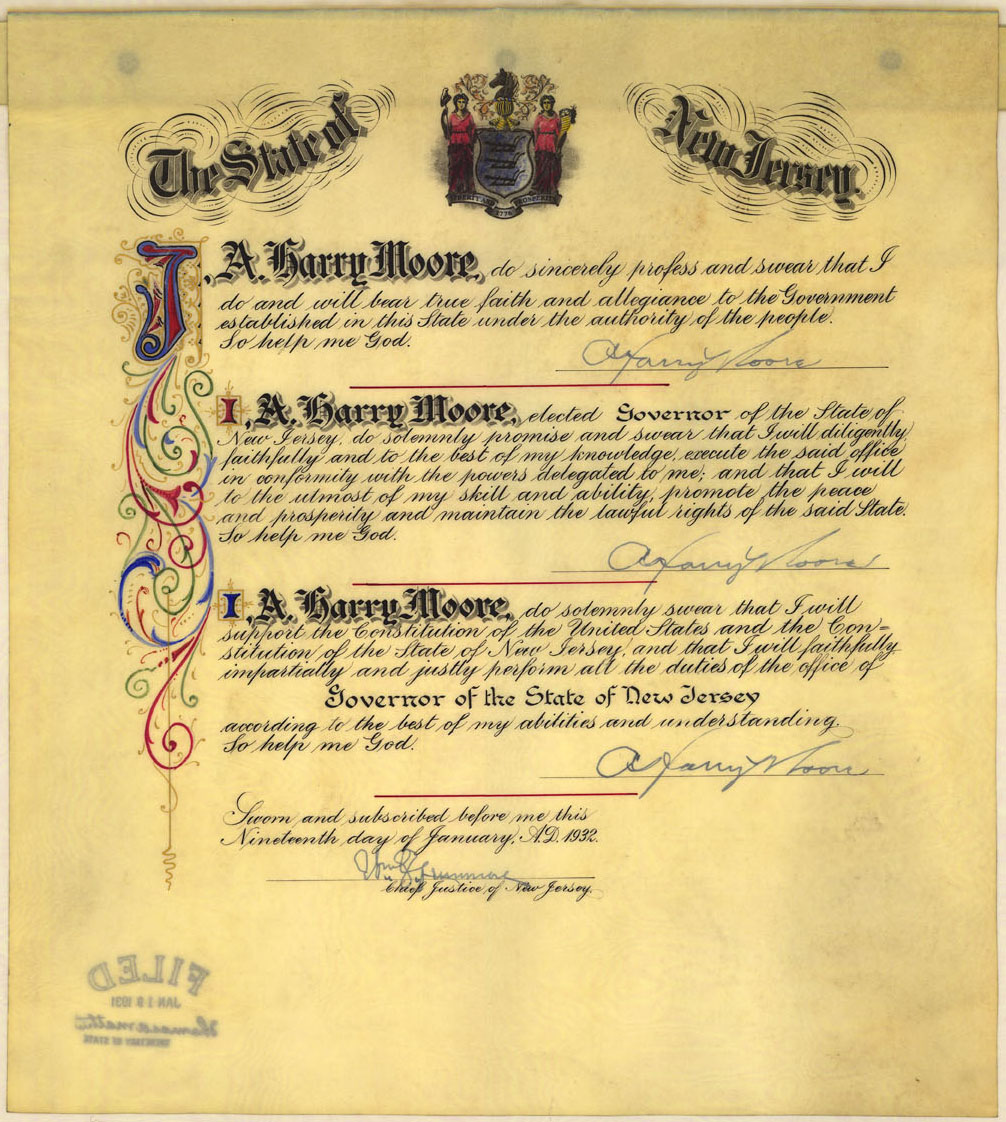 The State of
New Jersey.
LIBERTY AND PROSPERITY
1776
I, A. Harry Moore, do sincerely profess and swear that I
do and will bear true faith and allegiance to the Government
established in this State under the authority of the people.
So help me God.
A Harry Moore
I, A. Harry Moore, elected Governor of the State of
New Jersey, do solemnly promise and swear that I will diligently,
faithfully and to the best of my knowledge, execute the said office
in conformity with the powers delegated to me; and that I will
to the utmost of my skill and ability, promote the peace
and prosperity and maintain the lawful rights of the said State.
So help me God.
A Harry Moore
I, A. Harry Moore, do solemnly swear that I will
support the Constitution of the United States and the Con=
stitution of the State of New Jersey, and that I will faithfully
impartially and justly perform all the duties of the office of
Governor of the State of New Jersey
according to the best of my abilities and understanding.
So help me God.
A Harry Moore
Sworn and subscribed before me this
Nineteenth day of January, A.D. 1932.
Wm S Gummere
Chief Justice of New Jersey.
FILED
JAN 19 1931
SECRETARY OF STATE